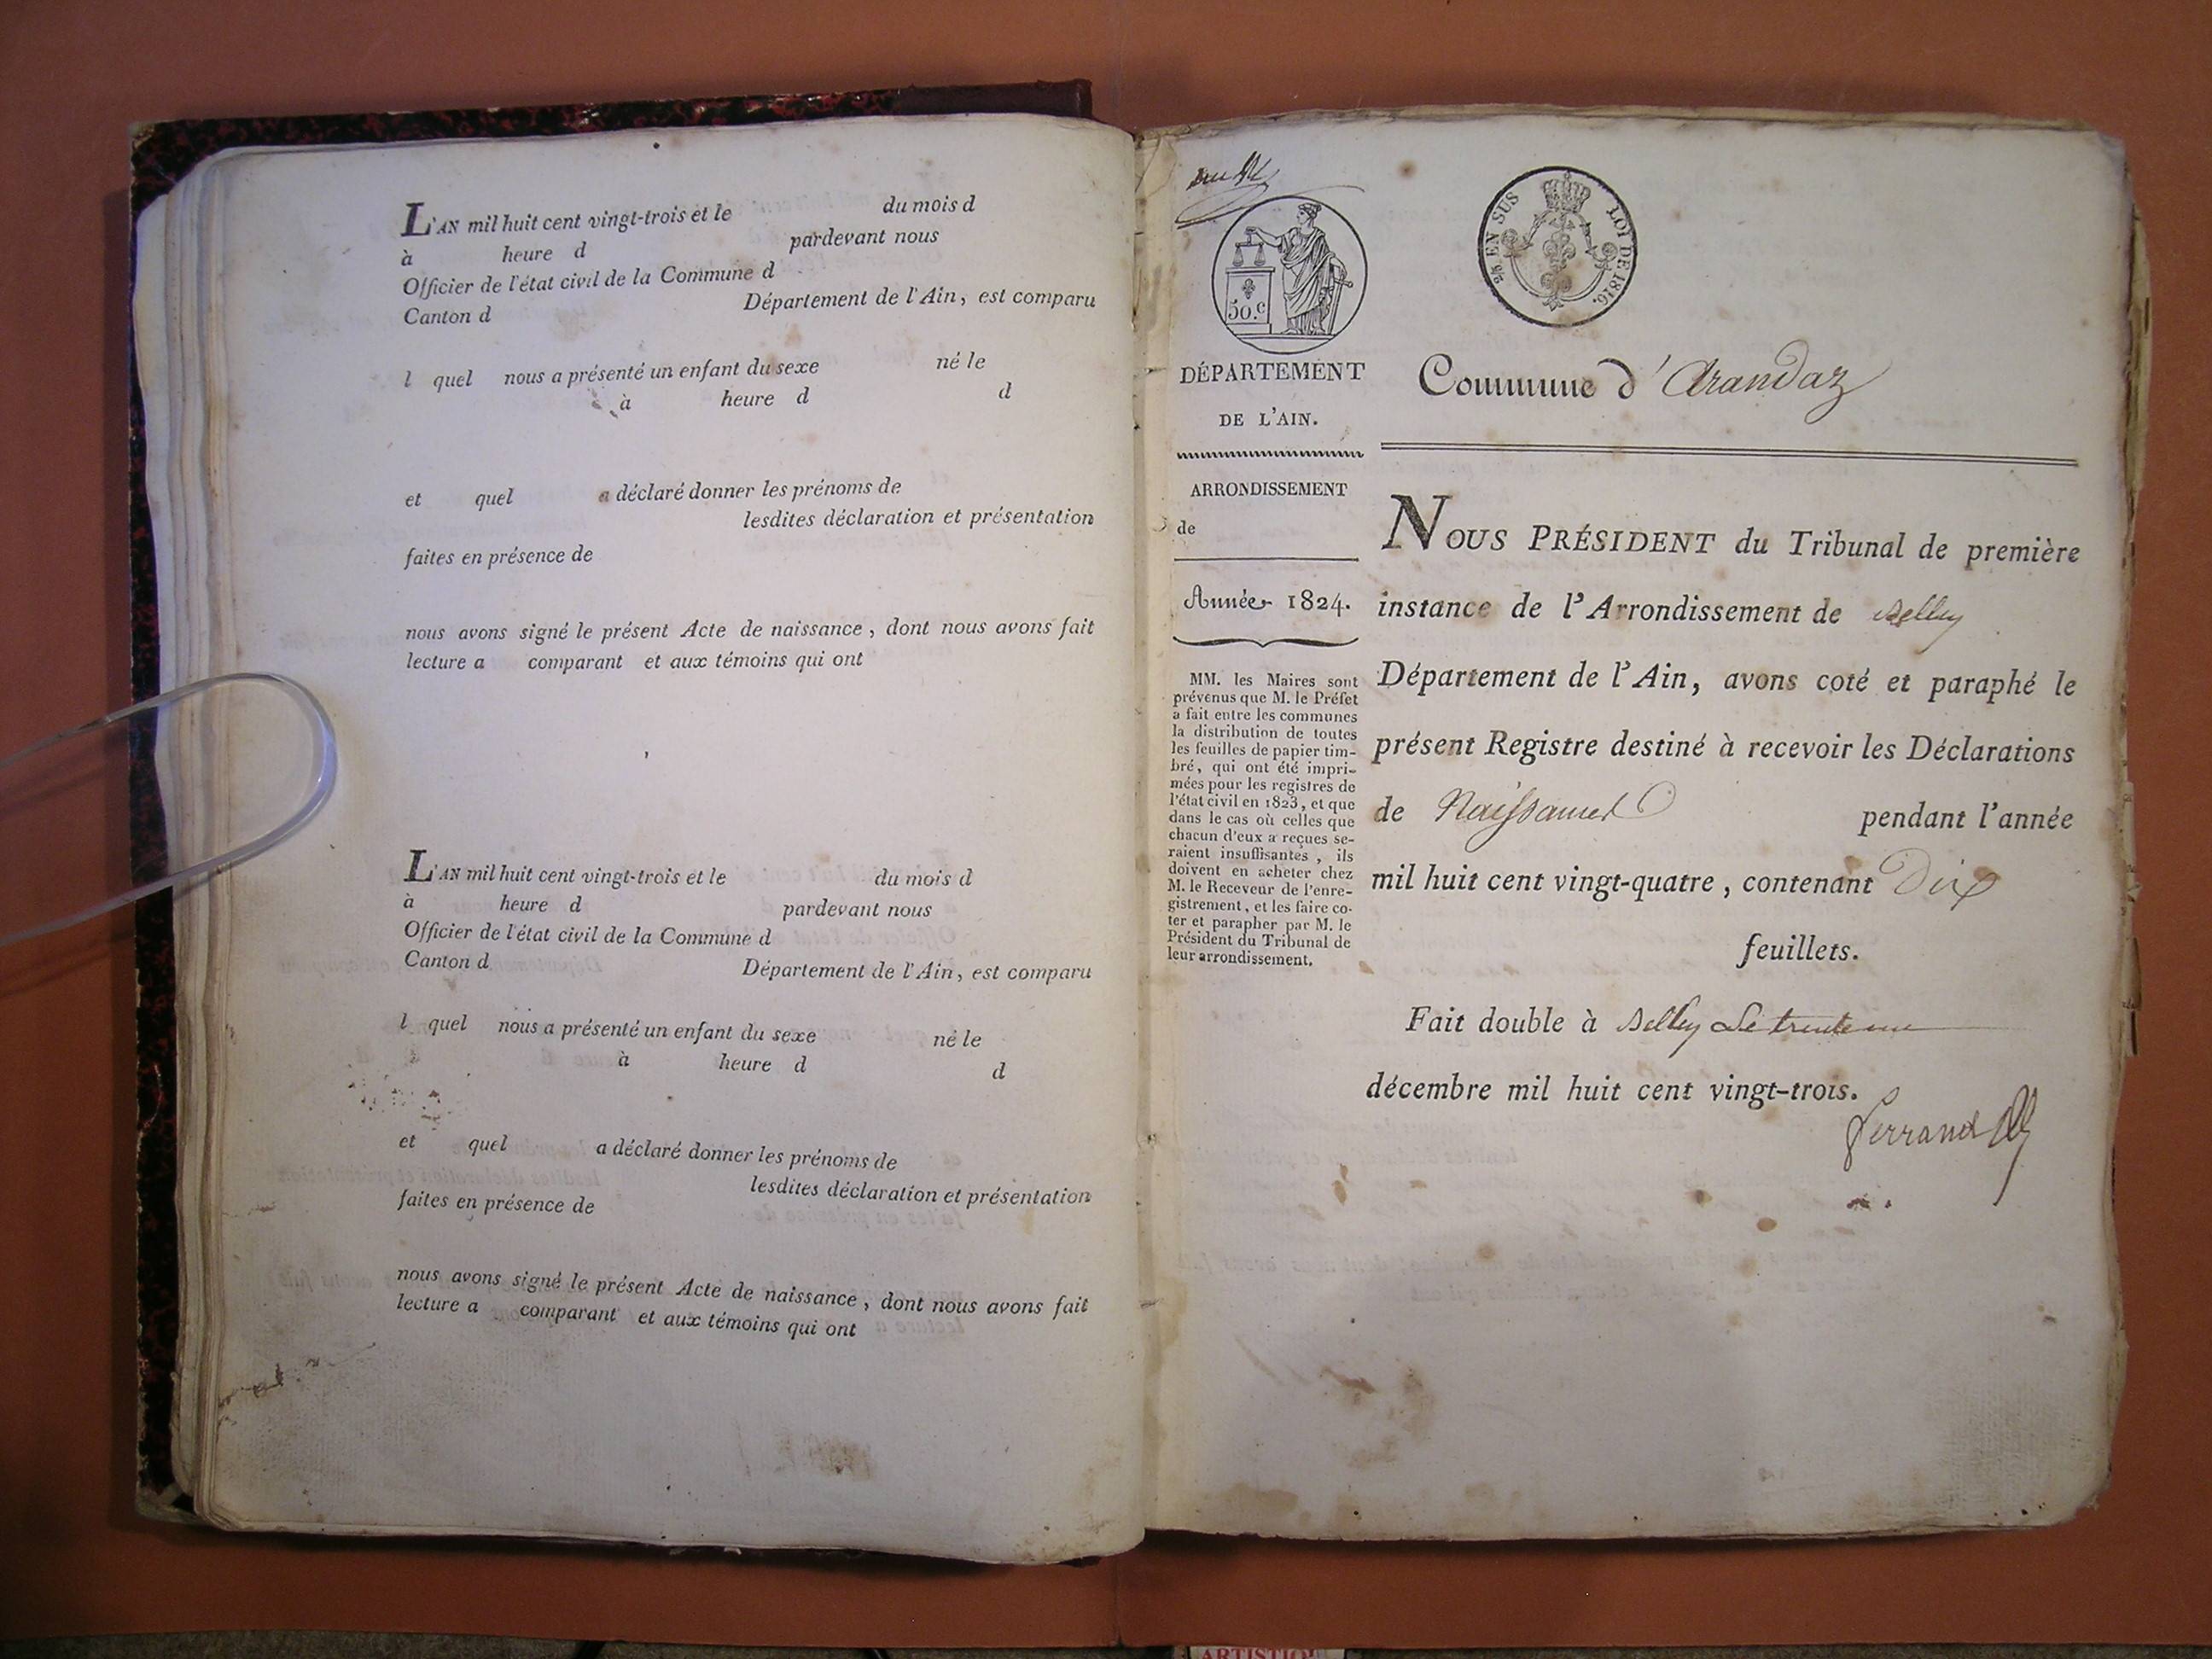 L'AN mil huit cent vingt-trois et le du mois d
à heure d pardevant nous
Officier de l'état civil de la Commune d
Canton d Département de l'Ain, est comparu
l quel nous a présenté un enfant du sexe né le
à heure d d
et quel a déclaré donner les prénoms de
lesdites déclaration et présentation
faites en présence de
nous avons signé le présent Acte de naissance, dont nous avons fait
lecture a comparant et aux témoins qui ont
L'AN mil huit cent vingt-trois et le du mois d
à heure d pardevant nous
Officier de l'état civil de la Commune d
Canton d Département de l'Ain, est comparu
l quel nous a présenté un enfant du sexe né le
à heure d d
et quel a déclaré donner les prénoms de
lesdites déclaration et présentation
faites en présence de
nous avons signé le présent Acte de naissance, dont nous avons fait
lecture a comparant et aux témoins qui ont
50.c
EN SUS
LOI DE 1816.
DÉPARTEMENT
DE L'AIN.
ARRONDISSEMENT
de
Année 1824.
MM. les Maires sont
prévenus que M. le Préfet
a fait entre les communes
la distribution de toutes
les feuilles de papier tim-
bré, qui ont été impri-
mées pour les registres de
l'état civil en 1823, et que
dans le cas où celles que
chacun d'eux a reçues se-
raient insuffisantes, ils
doivent en acheter chez
M. le Receveur de l'enre-
gistrement, et les faire co-
ter et parapher par M. le
Président du Tribunal de
leur arrondissement.
Commune d'Arandaz
NOUS PRÉSIDENT du Tribunal de première
instance de l'Arrondissement de Belley
Département de l'Ain, avons coté et paraphé le
présent Registre destiné à recevoir les Déclarations
de Naissances pendant l'année
mil huit cent vingt-quatre, contenant Dix
feuillets.
Fait double à Belley Le trente un
décembre mil huit cent vingt-trois.
Ferrand
ARTISTIQU